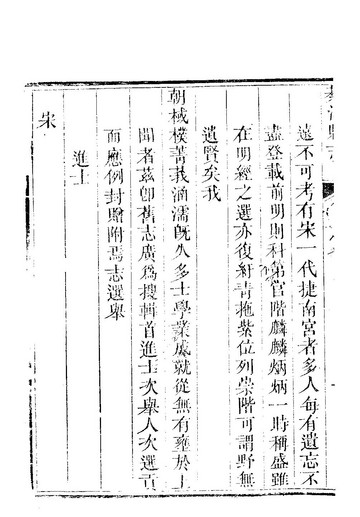 遠不可考有宋一代捷南宮者多人每有遺忘不
盡登載前明則科第官階麟麟炳炳一時稱盛雖
在明經之選亦復紆青拖紫位列榮階可謂野無
遺賢矣我
朝棫樸菁莪涵濡旣久多士學業成就從無有壅於上
聞者茲卽舊志廣爲搜輯首進士次舉人次選貢
而應例封贈附焉志選舉
進士
宋